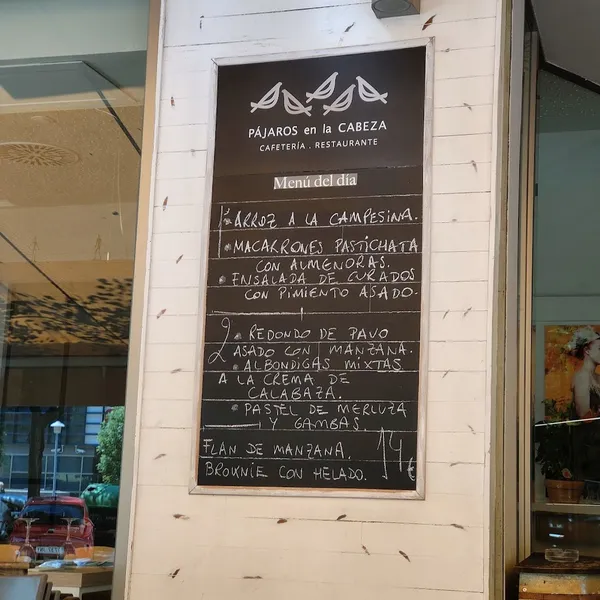 PÁJAROS en la CABEZA
CAFETERÍA . RESTAURANTE
Menú del día
1º • ARROZ A LA CAMPESINA.
• MACARRONES PASTICHATA
CON ALMENDRAS.
• ENSALADA DE CURADOS
CON PIMIENTO ASADO.
2º • REDONDO DE PAVO
ASADO CON MANZANA.
• ALBONDIGAS MIXTAS
A LA CREMA DE
CALABAZA.
• PASTEL DE MERLUZA
Y GAMBAS.
FLAN DE MANZANA.
BROWNIE CON HELADO.
14€